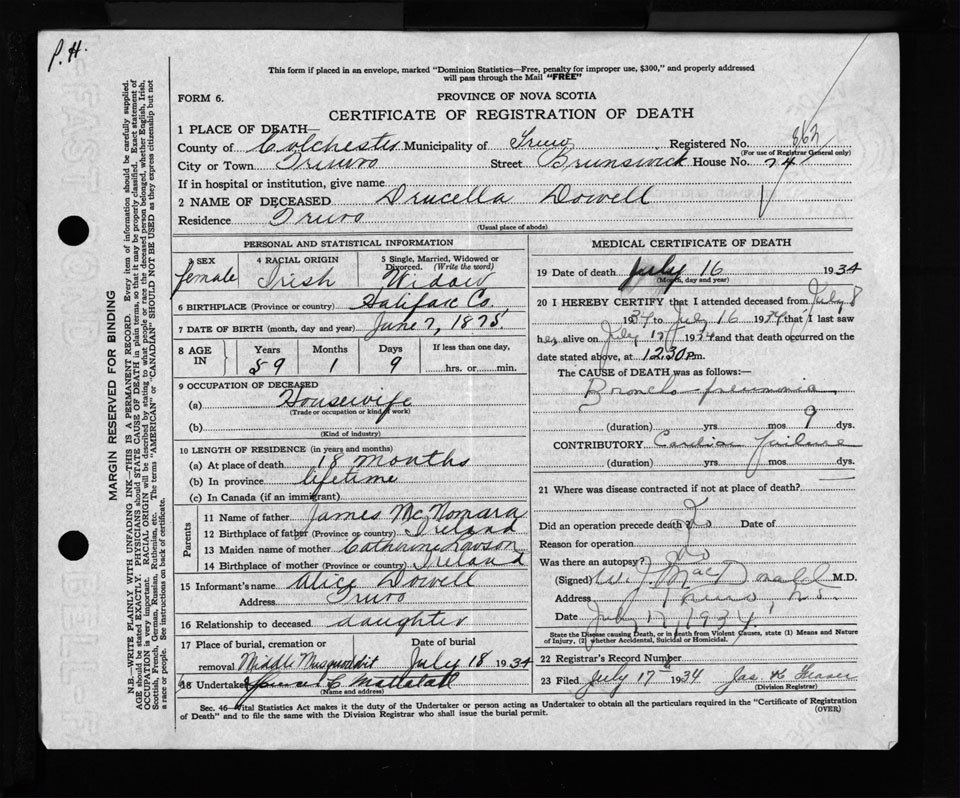 P. H.
This form if placed in an envelope, marked "Dominion Statistics—Free, penalty for improper use, $300," and properly addressed
will pass through the Mail "FREE"
FORM 6.
PROVINCE OF NOVA SCOTIA
CERTIFICATE OF REGISTRATION OF DEATH
1 PLACE OF DEATH
County of Colchester Municipality of Truro Registered No. 863
(For use of Registrar General only)
City or Town Truro Street Brunswick House No. 747
If in hospital or institution, give name
2 NAME OF DECEASED Drucella Dowell
Residence Truro
(Usual place of abode)
PERSONAL AND STATISTICAL INFORMATION
SEX female
4 RACIAL ORIGIN Irish
5 Single, Married, Widowed or Divorced. (Write the word) Widow
6 BIRTHPLACE (Province or country) Halifax Co.
7 DATE OF BIRTH (month, day and year) June 7, 1875
8 AGE IN Years 59 Months 1 Days 9 If less than one day, hrs. or min.
9 OCCUPATION OF DECEASED
(a) Housewife
(Trade or occupation or kind of work)
(b)
(Kind of industry)
10 LENGTH OF RESIDENCE (in years and months)
(a) At place of death 18 months
(b) In province lifetime
(c) In Canada (if an immigrant)
Parents
11 Name of father James McNomara
12 Birthplace of father (Province or country) Ireland
13 Maiden name of mother Catherine Lawson
14 Birthplace of mother (Province or country) Ireland
15 Informant's name Alice Dowell
Address Truro
16 Relationship to deceased daughter
17 Place of burial, cremation or removal Middle Musquodobit Date of burial July 18, 1934
18 Undertaker C Mattatall
(Name and address)
MEDICAL CERTIFICATE OF DEATH
19 Date of death July 16 1934
(Month, day and year)
20 I HEREBY CERTIFY that I attended deceased from July 8
1934 to July 16 1934 that I last saw
her alive on July 1934 and that death occurred on the
date stated above, at 12.30 pm.
The CAUSE of DEATH was as follows:—
Broncho pneumonia
(duration) yrs mos 9 dys.
CONTRIBUTORY Cardiac failure
(duration) yrs mos dys.
21 Where was disease contracted if not at place of death?
Did an operation precede death? No Date of
Reason for operation
Was there an autopsy? No
(Signed) W. J. MacDonald M.D.
Address Truro N.S.
Date July 17, 1934
State the Disease causing Death, or in death from Violent Causes, state (1) Means and Nature
of Injury, (2) whether Accidental, Suicidal or Homicidal.
22 Registrar's Record Number
23 Filed July 17 1934 Jas K Fraser
(Division Registrar)
Sec. 46—Vital Statistics Act makes it the duty of the Undertaker or person acting as Undertaker to obtain all the particulars required in the "Certificate of Registration
of Death" and to file the same with the Division Registrar who shall issue the burial permit.
(OVER)
MARGIN RESERVED FOR BINDING
N.B.—WRITE PLAINLY WITH UNFADING INK—THIS IS A PERMANENT RECORD. Every item of information should be carefully supplied.
AGE should be stated EXACTLY. PHYSICIANS should STATE CAUSE OF DEATH in plain terms, so that it may be properly classified. Exact statement of
OCCUPATION is very important. RACIAL ORIGIN will be described by stating to what people or race the deceased person belonged, whether English, Irish,
Scottish, French, German, Russian, Ruthenian, etc. The terms "AMERICAN" or "CANADIAN" SHOULD NOT BE USED as they express citizenship but not
a race or people. See instructions on back of certificate.